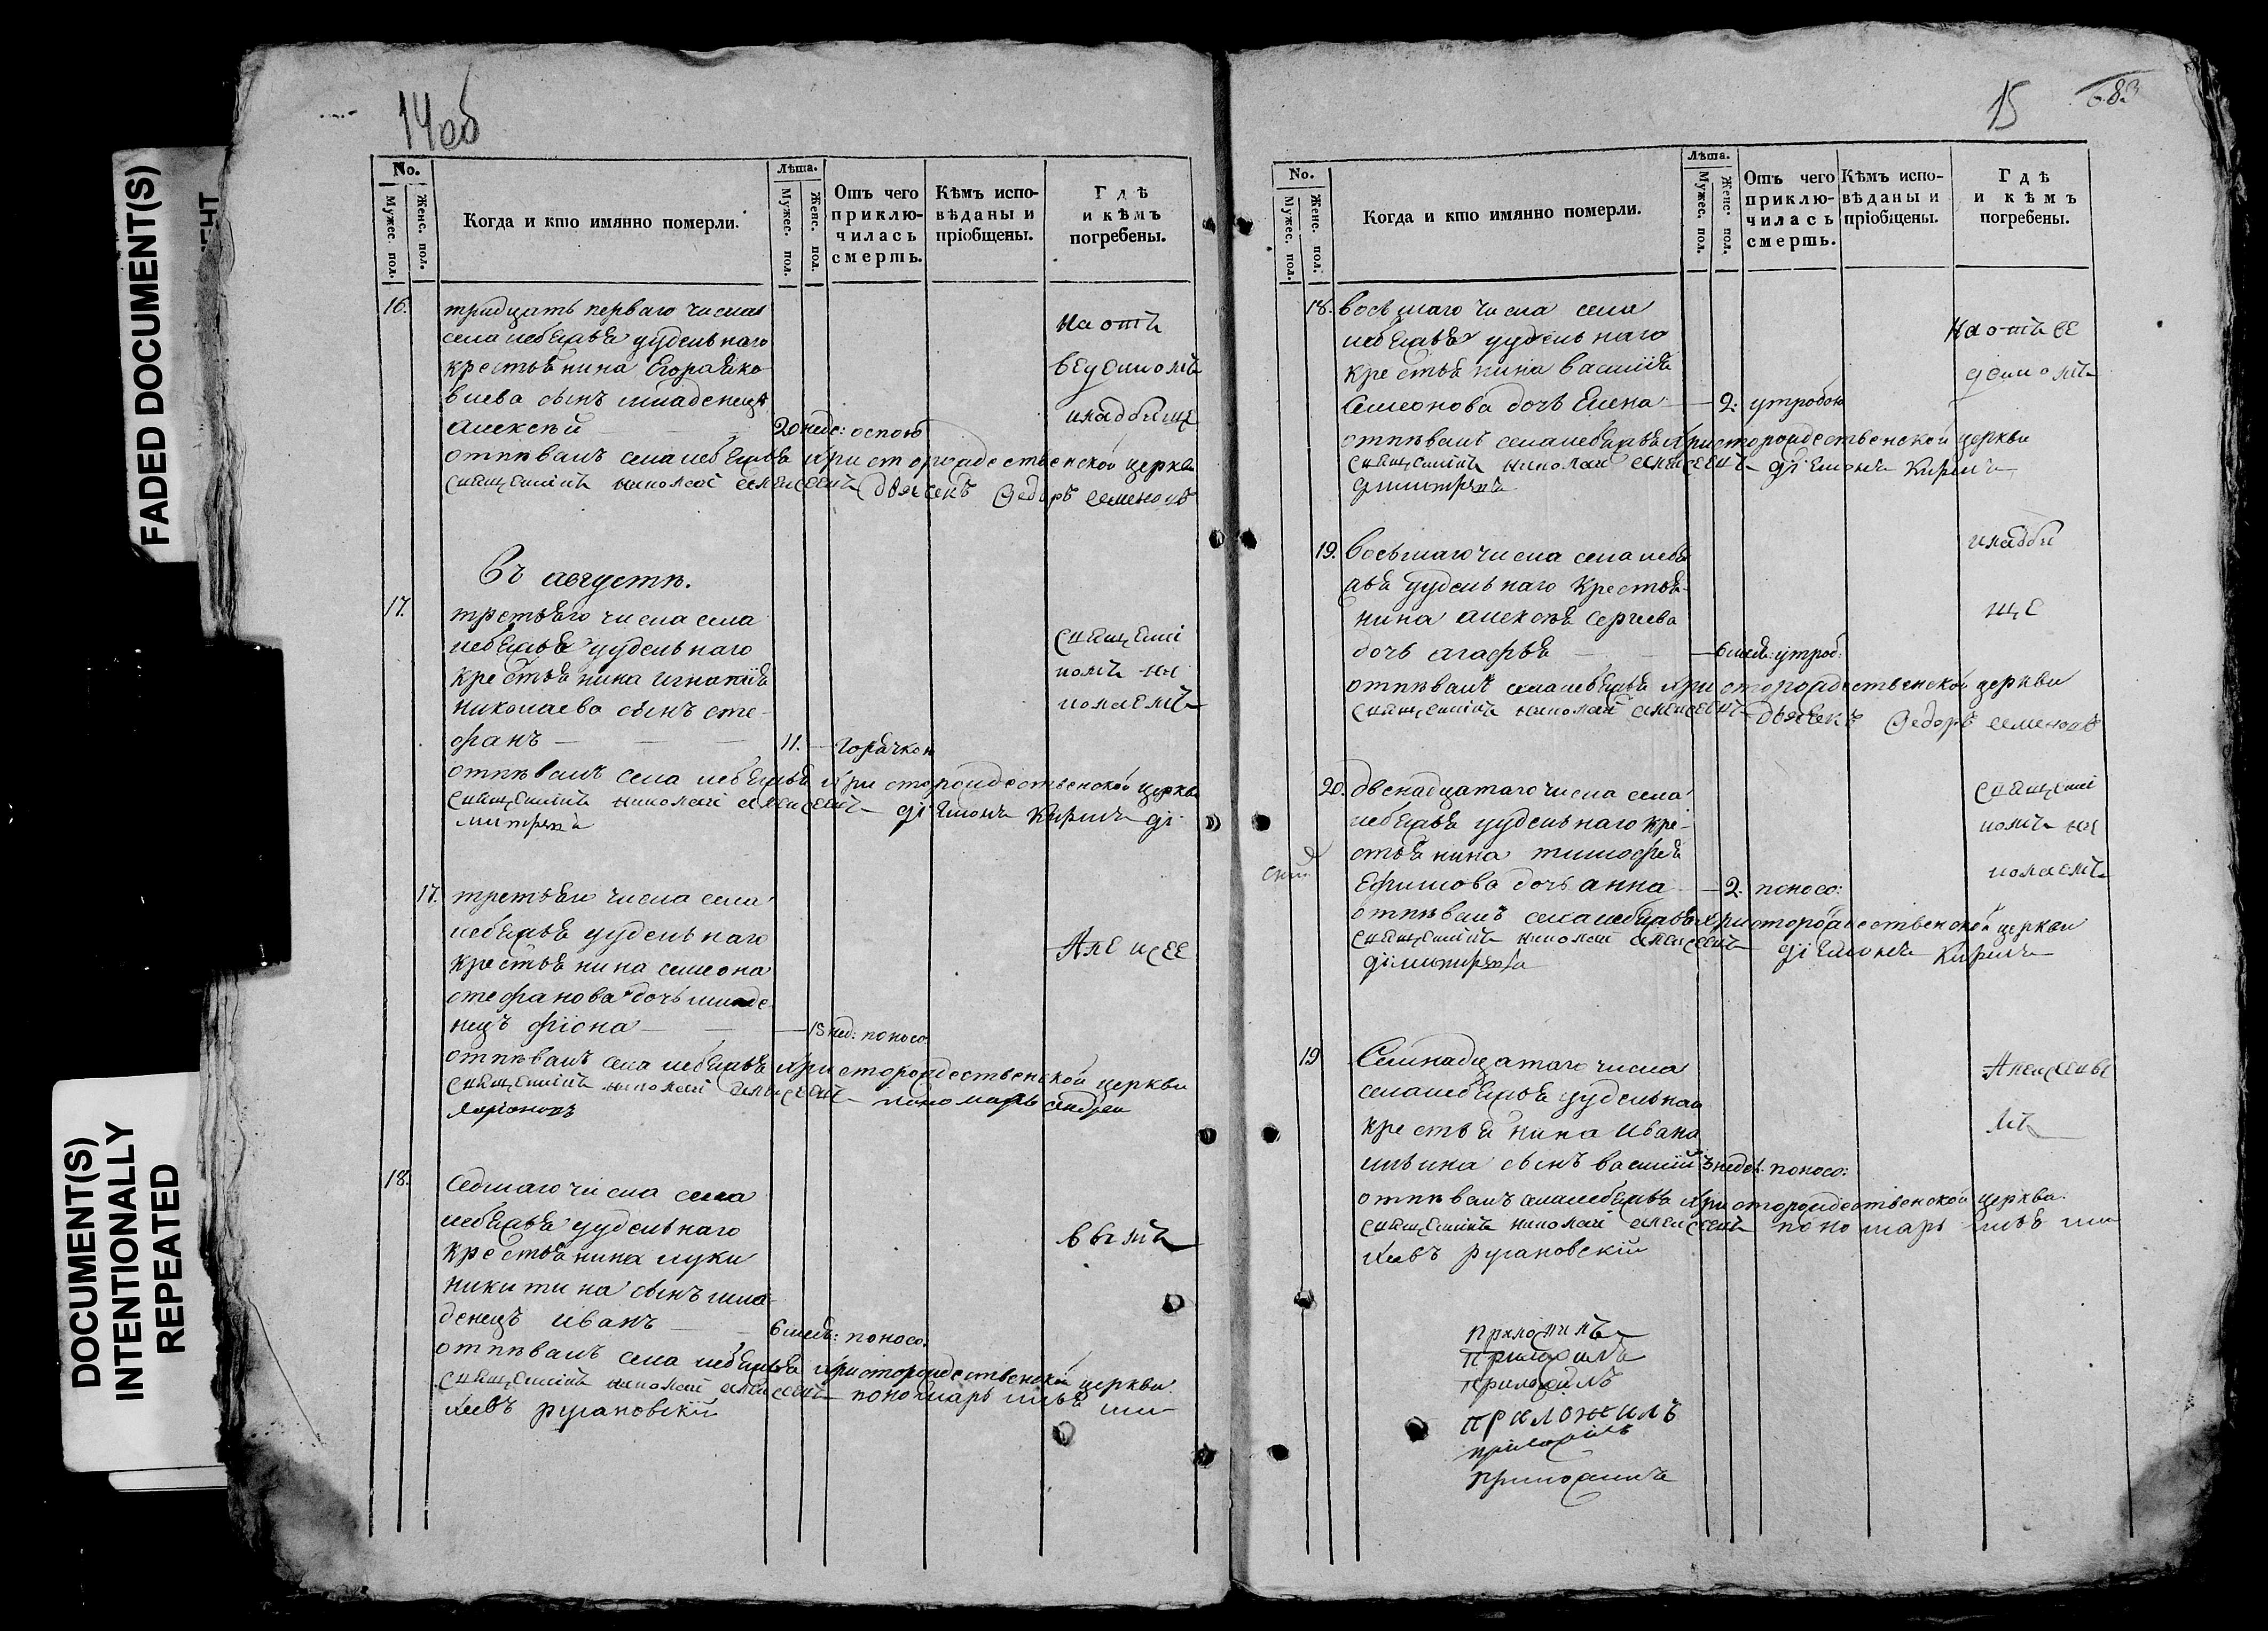 FADED DOCUMENT(S)
DOCUMENT(S)
INTENTIONALLY
REPEATED
14об
No.
Мужес. пол.
Женс. пол.
Когда и кто имянно померли.
Лѣта.
Мужес. пол.
Женс. пол.
Отъ чего
приклю-
чилась
смерть.
Кѣмъ испо-
вѣданы и
пріобщены.
Гдѣ
и кѣмъ
погребены.
16. тридцать перваго числа
села удельнаго
крестьянина Егора Яко
влева сынъ младенецъ
Алексѣй 20 неде: оспою
на отъ
веденомъ
кладбище
отпѣвалъ села христорождественской церкви
священникъ николай алексеевъ дьячекъ Федоръ семеновъ
Въ августѣ.
17. третьяго числа села
удельнаго
крестьянина игнатія
николаева сынъ сте-
фанъ 11. горячкою
священни
комъ ни
колаемъ
отпѣвалъ села христорождественской церкви
священникъ николай алексеевъ діяконъ Кирилъ ди
митріевъ
17. третьяго числа села
удельнаго
крестьянина семеона
стефанова дочь младе
нецъ фіона 15 нед: поносо:
Алексее
отпѣвалъ села христорождественской церкви
священникъ николай алексеевъ пономарь андрей
ларіоновъ
18. седмаго числа села
удельнаго
крестьянина луки
никитина сынъ мла-
денецъ иванъ 6 неде: поносо:
вымъ
отпѣвалъ села христорождественской церкви
священникъ николай алексеевъ пономарь илья ми
хаевъ ругановскій
15
No.
Мужес. пол.
Женс. пол.
Когда и кто имянно померли.
Лѣта.
Мужес. пол.
Женс. пол.
Отъ чего
приклю-
чилась
смерть.
Кѣмъ испо-
вѣданы и
пріобщены.
Гдѣ
и кѣмъ
погребены.
18. восьмаго числа села
удельнаго
крестьянина василія
семеонова дочь Елена 2. утробою
на отъве
деномъ
отпѣвалъ села христорождественской церкви
священникъ николай алексеевъ діяконъ Кирилъ
димитріевъ
19. восьмаго числа села
удельнаго крестья-
нина алексѣя сергиева
дочь агафья 6 неде: утроб:
кладби
ще
отпѣвалъ села христорождественской церкви
священникъ николай алексеевъ дьячекъ Федоръ семеновъ
20. двенадцатаго числа села
удельнаго кре-
стьянина тимофея
Ефимова дочь анна 2. поносо:
священни
комъ ни
колаемъ
отпѣвалъ села христорождественской церкви
священникъ николай алексеевъ діяконъ Кирилъ
димитріевъ
19 Семнадцатаго числа
села удельнаго
крестьянина ивана
ильина сынъ василій 3 недел. поносо:
Алексеевы
мъ
отпѣвалъ села христорождественской церкви
священникъ николай алексеевъ пономарь илья ми
хаевъ ругановскій
приложилъ
приложилъ
приложилъ
приложилъ
приложилъ
приложилъ